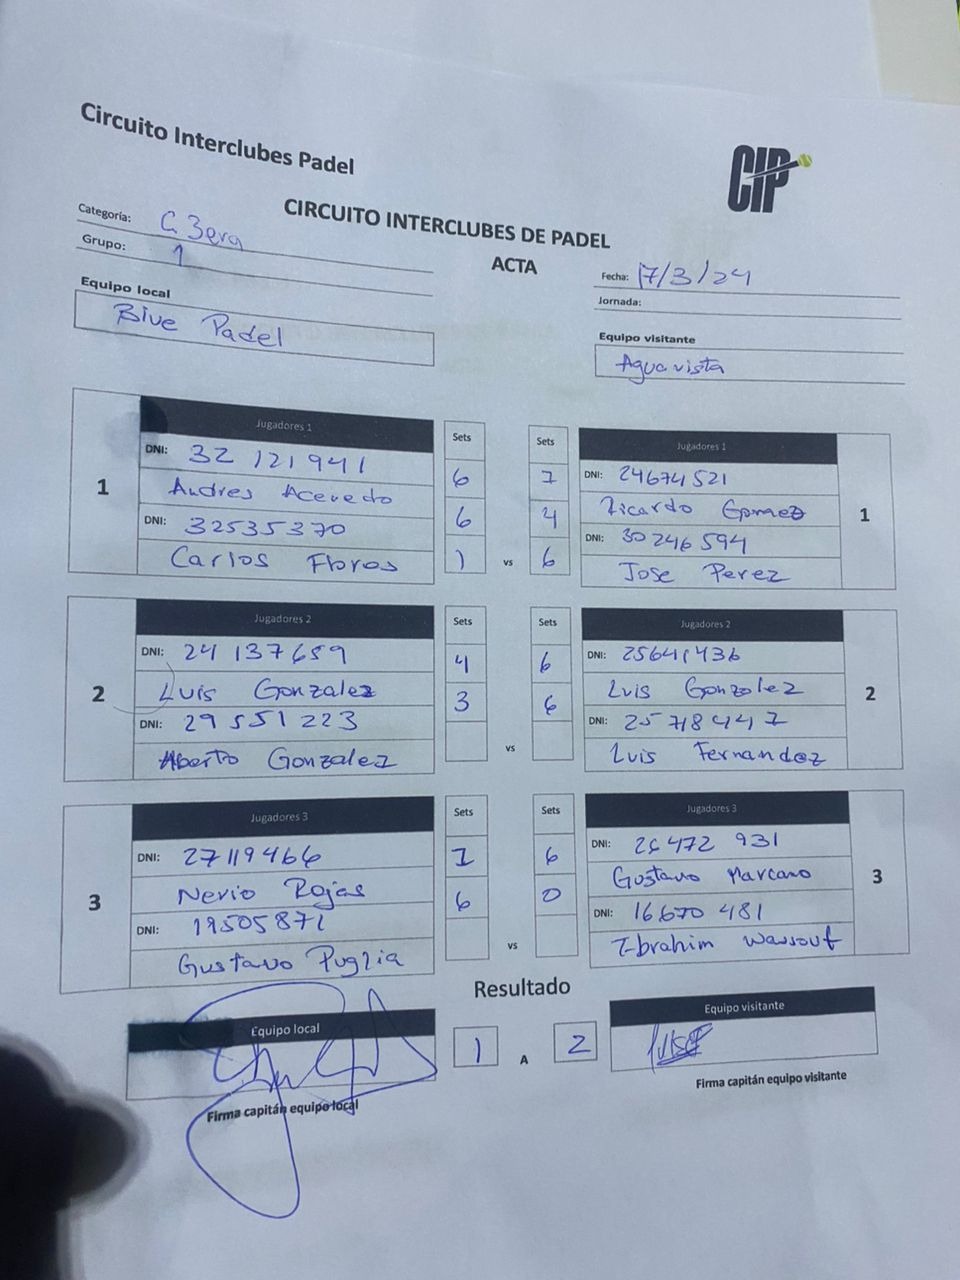 Circuito Interclubes Padel
CIP
CIRCUITO INTERCLUBES DE PADEL
ACTA
Categoría: C. 3era
Grupo: 1
Fecha: 17/3/24
Jornada:
Equipo local
Blue Padel
Equipo visitante
Aguavista
1
Jugadores 1
DNI: 32 121 941
Andres Acevedo
DNI: 32535370
Carlos Flores
Sets
6
6
1
vs
Sets
7
4
6
Jugadores 1
DNI: 24674521
Ricardo Gomez
DNI: 30 246 594
Jose Perez
1
2
Jugadores 2
DNI: 24 137659
Luis Gonzalez
DNI: 29 551 223
Alberto Gonzalez
Sets
4
3
vs
Sets
6
6
Jugadores 2
DNI: 25641436
Luis Gonzolez
DNI: 25 718 447
Luis Fernandez
2
3
Jugadores 3
DNI: 27119466
Nerio Rojas
DNI: 19505871
Gustavo Puglia
Sets
7
6
vs
Sets
6
0
Jugadores 3
DNI: 26 472 931
Gustavo Marcano
DNI: 16670 481
Ibrahim Wassouf
3
Resultado
Equipo local
1 A 2
Equipo visitante
Firma capitán equipo local
Firma capitán equipo visitante